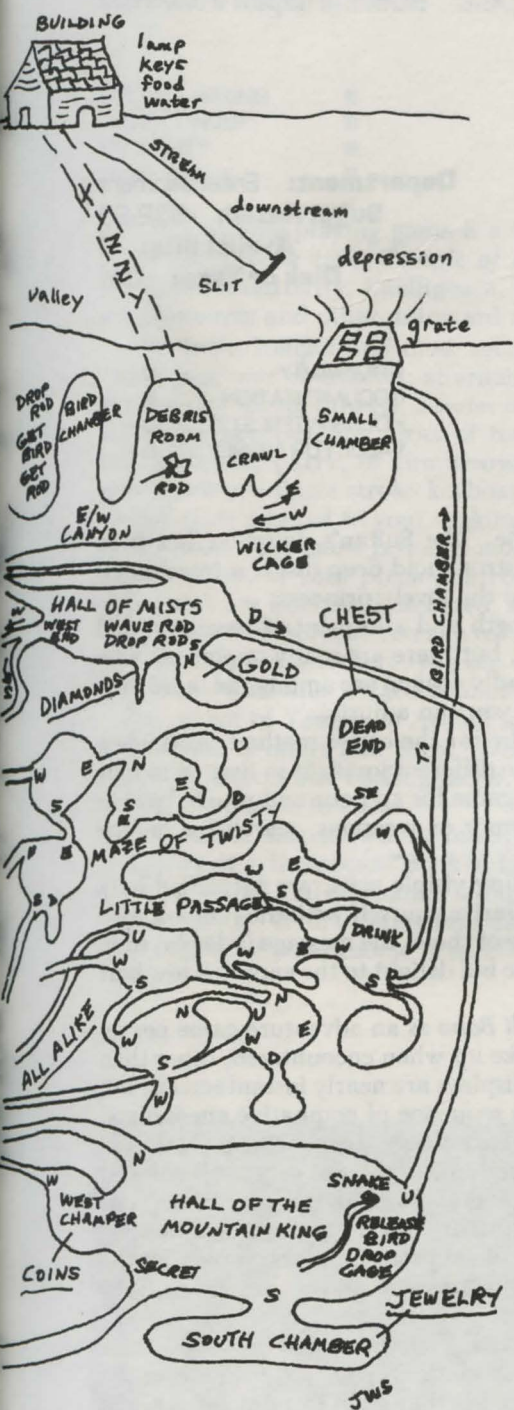 BUILDING
lamp
keys
food
water
STREAM
downstream
XYZZY
SLIT
depression
valley
grate
Department:
DROP
ROD
GET
BIRD
GET
ROD
BIRD
CHAMBER
DEBRIS
ROOM
ROD
CRAWL
SMALL
CHAMBER
E
W
E/W
CANYON
WICKER
CAGE
BIRD CHAMBER
HALL OF MISTS
WEST
END
WAVE ROD
DROP ROD
S
N
D
W
CHEST
GOLD
DIAMONDS
DEAD
END
T?
U
W
E
N
E
D
S
S
E
SE
W
MAZE OF TWISTY
W
E
S
LITTLE PASSAGES
DRINK
E
W
S
N
S
D
U
W
W
S
N
N
U
W
W
E
D
S
W
ALL ALIKE
N
W
WEST
CHAMPER
COINS
SECRET
HALL OF THE
MOUNTAIN KING
SNAKE
U
RELEASE
BIRD
DROP
CAGE
S
JEWELRY
SOUTH CHAMBER
JWS